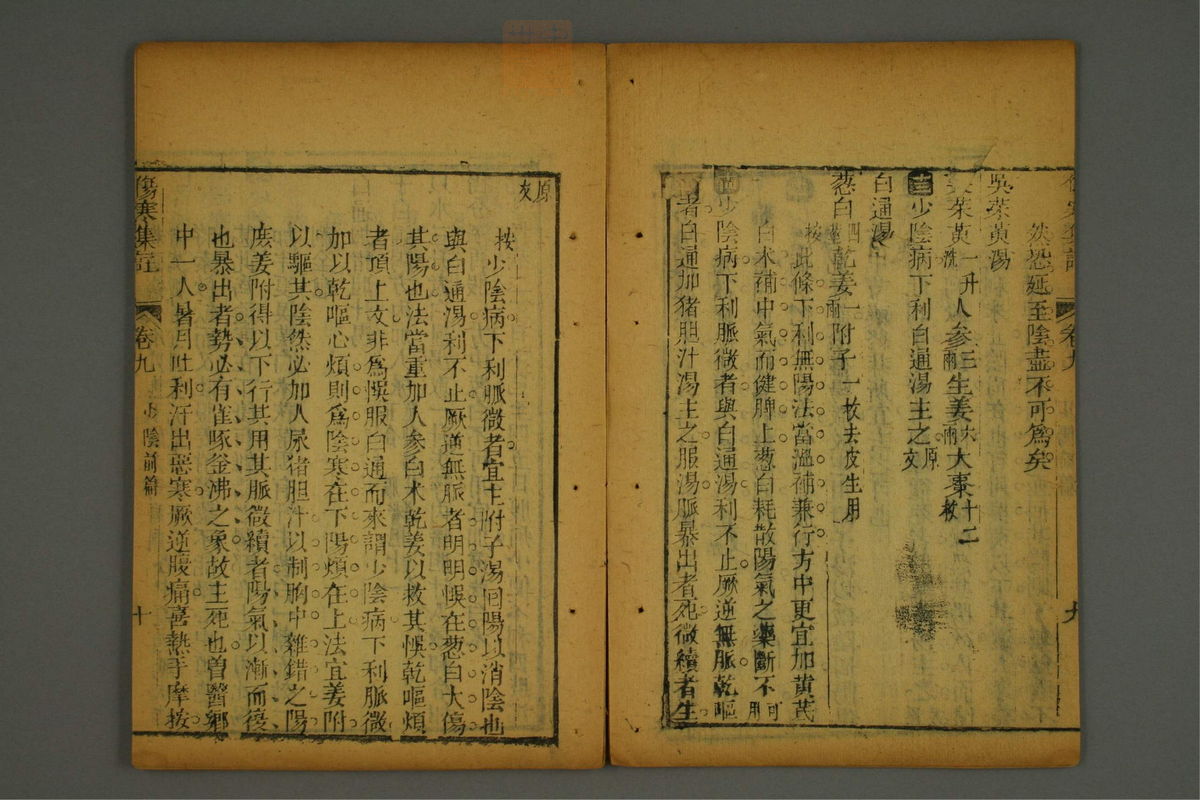 然恐延至陰盡不可為矣
吳茱萸湯
茱萸一升洗人參三兩生姜六兩大棗十二枚
少陰病下利白通湯主之原文
白通湯
葱白四莖乾姜一兩附子一枚去皮生用
按此條下利無陽法當溫補兼行方中更宜加黃芪
白术補中氣而健脾上葱白耗散陽氣之藥斷不可用
少陰病下利脈微者與白通湯利不止厥逆無脈乾嘔
者白通加猪胆汁湯主之服湯脈暴出者死微續者生
卷九
九
原文
按少陰病下利脈微者宜主附子湯回陽以消陰也
與白通湯利不止厥逆無脈者明明悞在葱白大傷
其陽也法當重加人參白术乾姜以救其悞乾嘔煩
者頂上文非為悞服白通而來謂少陰病下利脈微
加以乾嘔心煩則為陰寒在下陽煩在上法宜姜附
以驅其陰然必加人尿猪胆汁以制胸中雜錯之陽
庻姜附得以下行其用其脈微續者陽氣以漸而復
也暴出者勢必有雀啄釜沸之象故主死也曾醫鄉
中一人暑月吐利汗出惡寒厥逆腹痛喜熱手摩按
傷寒集註
卷九
少陰前篇
十